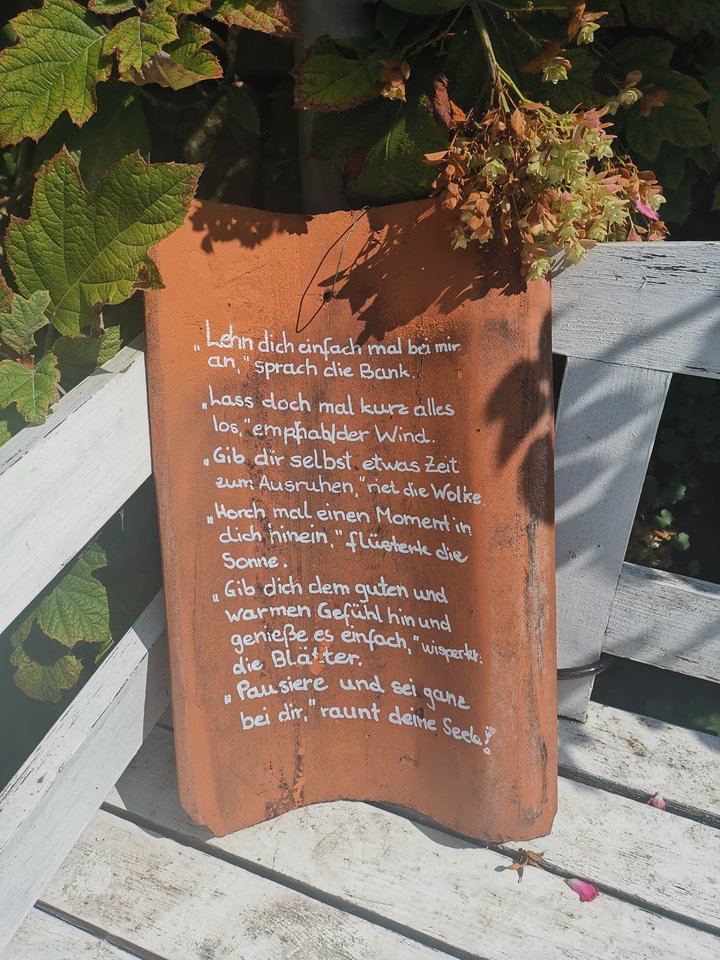 „Lehn dich einfach mal bei mir
an," sprach die Bank.
„Lass doch mal kurz alles
los," empfahl der Wind.
„Gib dir selbst etwas Zeit
zum Ausruhen," riet die Wolke.
„Horch mal einen Moment in
dich hinein," flüsterte die
Sonne.
„Gib dich dem guten und
warmen Gefühl hin und
genieße es einfach," wisperten
die Blätter.
„Pausiere und sei ganz
bei dir," raunt deine Seele!